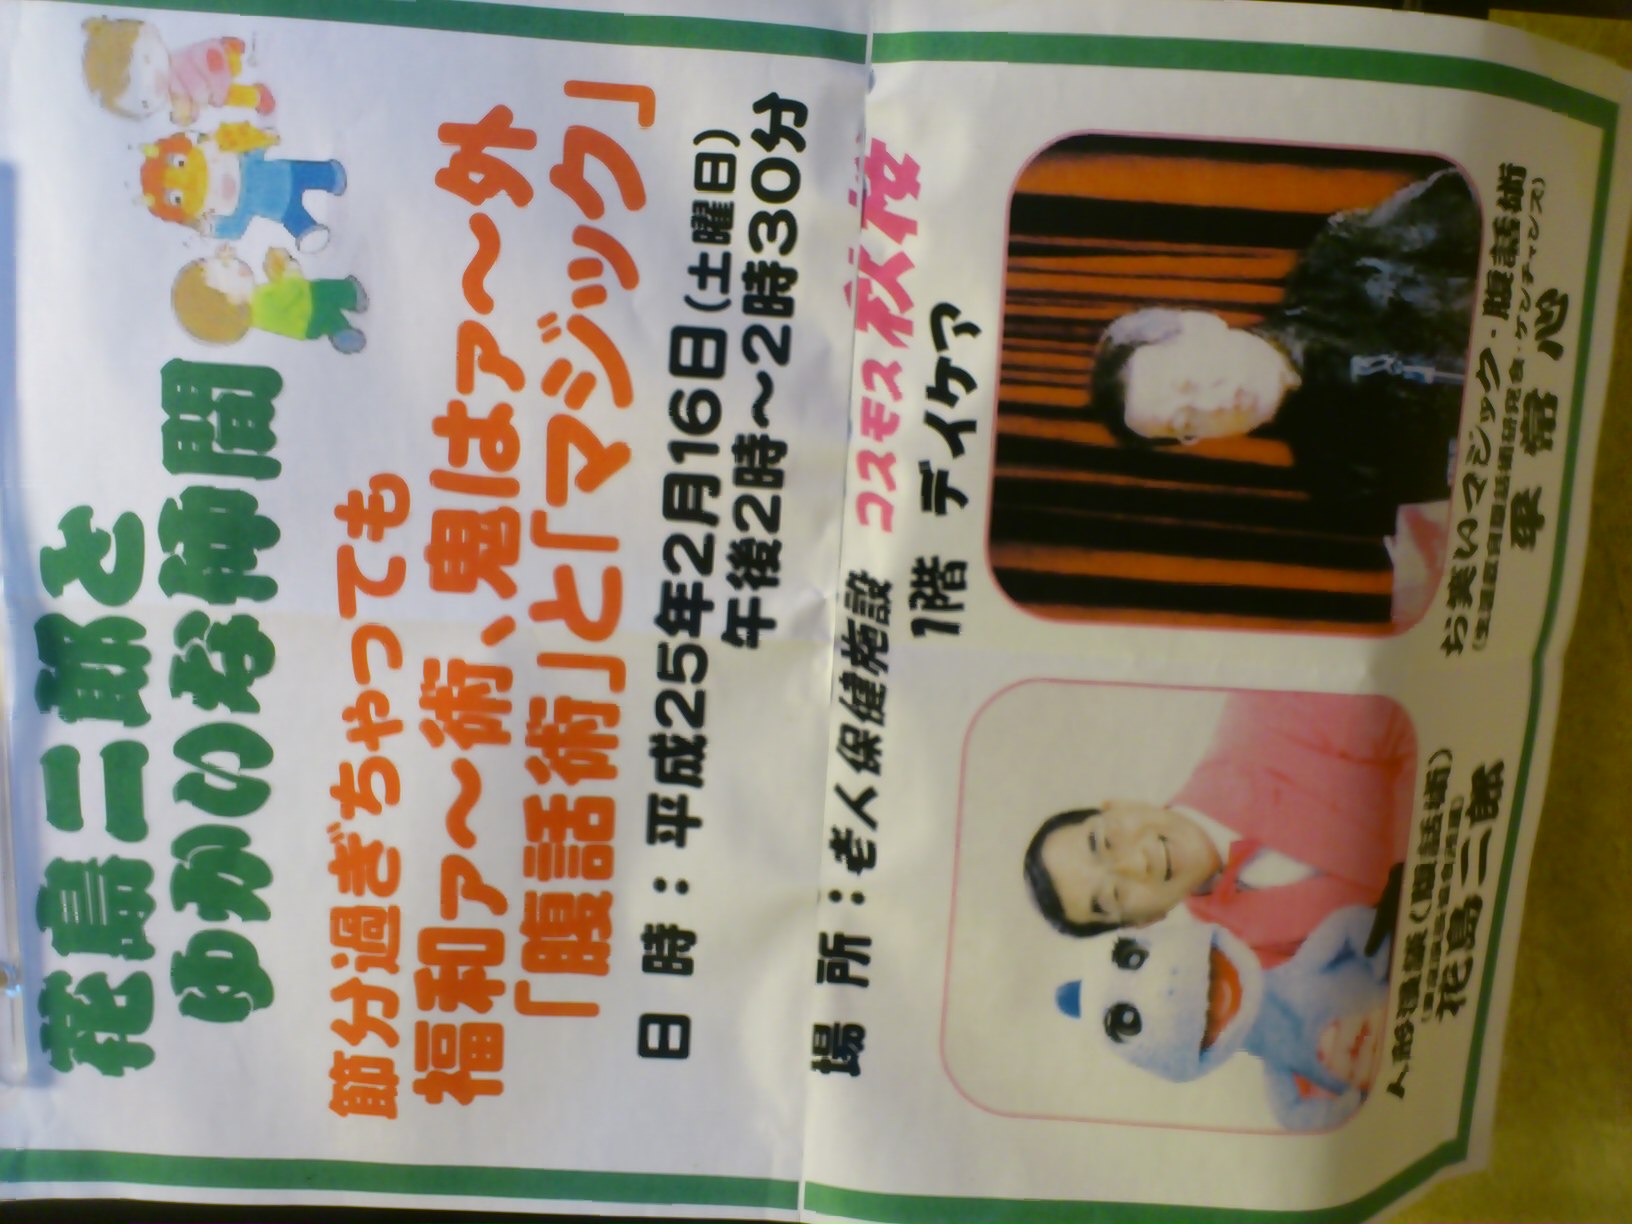 花島二郎と
ゆかいな仲間
節分過ぎちゃっても
福和ァ～術、鬼はァ～外
「腹話術」と「マジック」
日 時：平成25年2月16日(土曜日)
午後2時～2時30分
場 所：老人保健施設 コスモス秋桜
1階 デイケア
人形漫談(腹話術)
花島二郎
お笑いマジック・腹話術